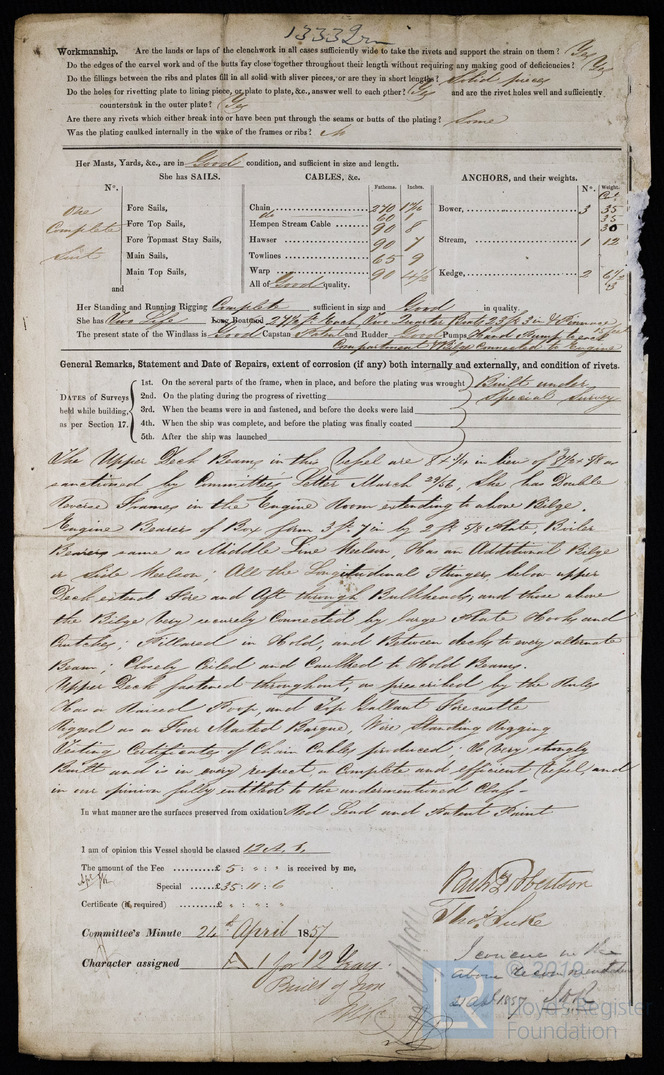 13332 Irn
Workmanship. Are the lands or laps of the clenchwork in all cases sufficiently wide to take the rivets and support the strain on them? Yes
Do the edges of the carvel work and of the butts fay close together throughout their length without requiring any making good of deficiencies? Yes
Do the fillings between the ribs and plates fill in all solid with sliver pieces, or are they in short lengths? Solid pieces
Do the holes for rivetting plate to lining piece, or plate to plate, &c., answer well to each other? Yes and are the rivet holes well and sufficiently
countersunk in the outer plate? Yes
Are there any rivets which either break into or have been put through the seams or butts of the plating? Some
Was the plating caulked internally in the wake of the frames or ribs? No
Her Masts, Yards, &c., are in Good condition, and sufficient in size and length.
She has SAILS. CABLES, &c. ANCHORS, and their weights.
No. Fathoms. Inches. No. Weight.
Cwt
One Complete Suit
Fore Sails, Chain 270 Bower, 3 35
do 60 35
Fore Top Sails, Hempen Stream Cable 90 8 30
Fore Topmast Stay Sails, Hawser 90 7 Stream, 1 12
Main Sails, Towlines 65 9
Main Top Sails, Warp 90 4½ Kedge, 2 6½
and All of Good quality. 3
Her Standing and Running Rigging Complete sufficient in size and Good in quality.
She has Two Life Long Boat and 27½ ft Each, Two Quarter Boats 23 ft 3 in & Pinnace
The present state of the Windlass is Good Capstan Patent and Rudder Good Pumps Hand Pump to each
Compartment & Bilge Connected to Engine
General Remarks, Statement and Date of Repairs, extent of corrosion (if any) both internally and externally, and condition of rivets.
DATES of Surveys held while building, as per Section 17.
1st. On the several parts of the frame, when in place, and before the plating was wrought Built under
2nd. On the plating during the progress of rivetting Special Survey
3rd. When the beams were in and fastened, and before the decks were laid
4th. When the ship was complete, and before the plating was finally coated
5th. After the ship was launched
The Upper Deck Beams in this Vessel are 8 + ¾ in lieu of 8½ × 5/8 as
sanctioned by Committees Letter March 29/56, She has Double
Reverse Frames in the Engine Room extending to above Bilge.
Engine Bearers of Box form 3 ft 7 in by 2 ft 5/8 Plate, Boiler
Bearers same as Middle Line Keelson, has an Additional Bilge
or Side Keelson; All the Longitudinal Stringers, below upper
Deck extend Fore and Aft through Bulkheads, and those above
the Bilge Very securely Connected by large Plate Hooks and
Crutches; Pillared in Hold, and Between decks to every alternate
Beam; Closely Ceiled and Caulked to Hold Beams.
Upper Deck fastened throughout, as prescribed by the Rules
Has a Raised Poop, and Top Gallant Forecastle
Rigged as a Four Masted Barque, Wire Standing Rigging
Testing Certificates of Chain Cables produced. Is Very strongly
Built and is in every respect, a Complete and efficient Vessel, and
in our opinion fully entitled to the undermentioned Class-
In what manner are the surfaces preserved from oxidation? Red Lead and Patent Paint
I am of opinion this Vessel should be classed 12 A. 1.
The amount of the Fee £ 5 : " : " is received by me,
Special £ 35 : 11 : 6
Certificate (if required) £ " : " : "
Robertson
Thos. Luke
Committee's Minute 24th April 1857
Character assigned A 1 for 12 Years
Built of Iron
I concur in the
above recommendation
21 Apl 1857
LR
© 20
Lloyd's Register
Foundation